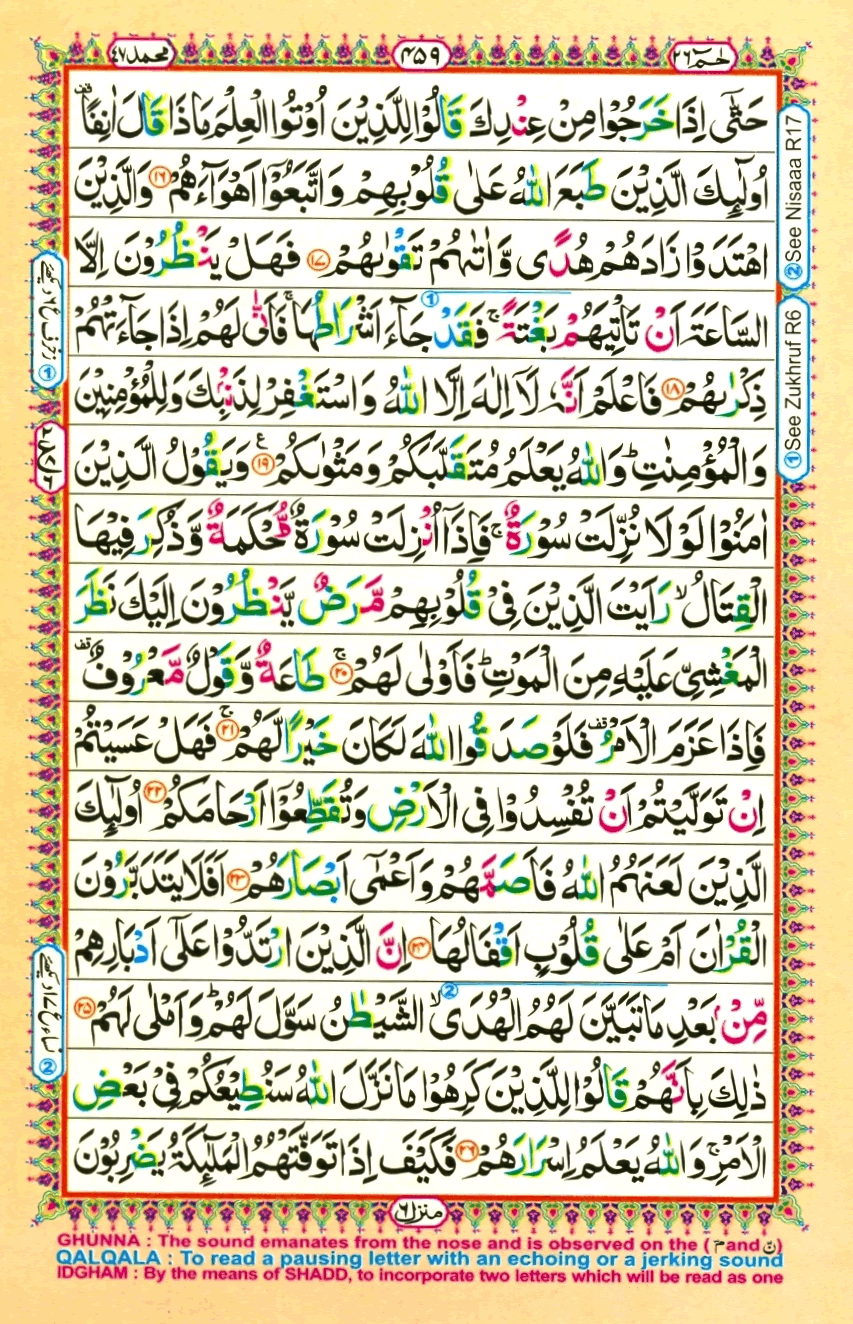 حٰمٓ ٢٦
۴۵۹
محمد ۴۷
حَتّٰۤى اِذَا خَرَجُوْا مِنْ عِنْدِكَ قَالُوْا لِلَّذِيْنَ اُوْتُوا الْعِلْمَ مَاذَا قَالَ اٰنِفًا قف
اُولٰٓئِكَ الَّذِيْنَ طَبَعَ اللّٰهُ عَلٰى قُلُوْبِهِمْ وَاتَّبَعُوْۤا اَهْوَآءَهُمْ ۱۶ وَالَّذِيْنَ
اهْتَدَوْا زَادَهُمْ هُدًى وَّاٰتٰىهُمْ تَقْوٰىهُمْ ۱۷ فَهَلْ يَنْظُرُوْنَ اِلَّا
السَّاعَةَ اَنْ تَاْتِيَهُمْ بَغْتَةً ۚ فَقَدْ جَآءَ اَشْرَاطُهَا ۚ فَاَنّٰى لَهُمْ اِذَا جَآءَتْهُمْ
ذِكْرٰىهُمْ ۱۸ فَاعْلَمْ اَنَّهٗ لَاۤ اِلٰهَ اِلَّا اللّٰهُ وَاسْتَغْفِرْ لِذَنْۢبِكَ وَلِلْمُؤْمِنِيْنَ
وَالْمُؤْمِنٰتِ ؕ وَاللّٰهُ يَعْلَمُ مُتَقَلَّبَكُمْ وَمَثْوٰىكُمْ ۱۹ ع وَيَقُوْلُ الَّذِيْنَ
اٰمَنُوْا لَوْلَا نُزِّلَتْ سُوْرَةٌ ۚ فَاِذَاۤ اُنْزِلَتْ سُوْرَةٌ مُّحْكَمَةٌ وَّذُكِرَ فِيْهَا
الْقِتَالُ ۙ رَاَيْتَ الَّذِيْنَ فِيْ قُلُوْبِهِمْ مَّرَضٌ يَّنْظُرُوْنَ اِلَيْكَ نَظَرَ
الْمَغْشِيِّ عَلَيْهِ مِنَ الْمَوْتِ ؕ فَاَوْلٰى لَهُمْ ۲۰ ج طَاعَةٌ وَّقَوْلٌ مَّعْرُوْفٌ قف
فَاِذَا عَزَمَ الْاَمْرُ قف فَلَوْ صَدَقُوا اللّٰهَ لَكَانَ خَيْرًا لَّهُمْ ۲۱ ج فَهَلْ عَسَيْتُمْ
اِنْ تَوَلَّيْتُمْ اَنْ تُفْسِدُوْا فِى الْاَرْضِ وَتُقَطِّعُوْۤا اَرْحَامَكُمْ ۲۲ اُولٰٓئِكَ
الَّذِيْنَ لَعَنَهُمُ اللّٰهُ فَاَصَمَّهُمْ وَاَعْمٰۤى اَبْصَارَهُمْ ۲۳ اَفَلَا يَتَدَبَّرُوْنَ
الْقُرْاٰنَ اَمْ عَلٰى قُلُوْبٍ اَقْفَالُهَا ۲۴ اِنَّ الَّذِيْنَ ارْتَدُّوْا عَلٰۤى اَدْبَارِهِمْ
مِّنْۢ بَعْدِ مَا تَبَيَّنَ لَهُمُ الْهُدَى ۙ الشَّيْطٰنُ سَوَّلَ لَهُمْ ؕ وَاَمْلٰى لَهُمْ ۲۵
ذٰلِكَ بِاَنَّهُمْ قَالُوْا لِلَّذِيْنَ كَرِهُوْا مَا نَزَّلَ اللّٰهُ سَنُطِيْعُكُمْ فِيْ بَعْضِ
الْاَمْرِ ۚ وَاللّٰهُ يَعْلَمُ اِسْرَارَهُمْ ۲۶ فَكَيْفَ اِذَا تَوَفَّتْهُمُ الْمَلٰٓئِكَةُ يَضْرِبُوْنَ
② See Nisaaa R17
① See Zukhruf R6
① زخرف ع ۶ دیکھیے
② نساء ع ۱۷ دیکھیے
منزل ۶
GHUNNA : The sound emanates from the nose and is observed on the ( مّ and نّ )
QALQALA : To read a pausing letter with an echoing or a jerking sound
IDGHAM : By the means of SHADD, to incorporate two letters which will be read as one